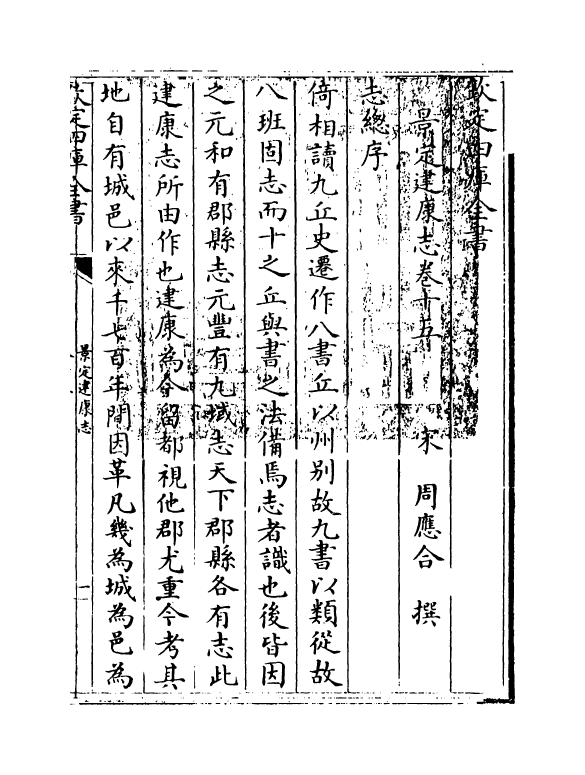 欽定四庫全書
景定建康志卷十五
宋 周應合 撰
志總序
倚相讀九丘史遷作八書丘以州别故九書以類從故
八班固志而十之丘與書之法備焉志者識也後皆因
之元和有郡縣志元豐有九域志天下郡縣各有志此
建康志所由作也建康為今留都視他郡尤重今考其
地自有城邑以來千七百年間因革凡幾為城為邑為
欽定四庫全書
景定建康志
一